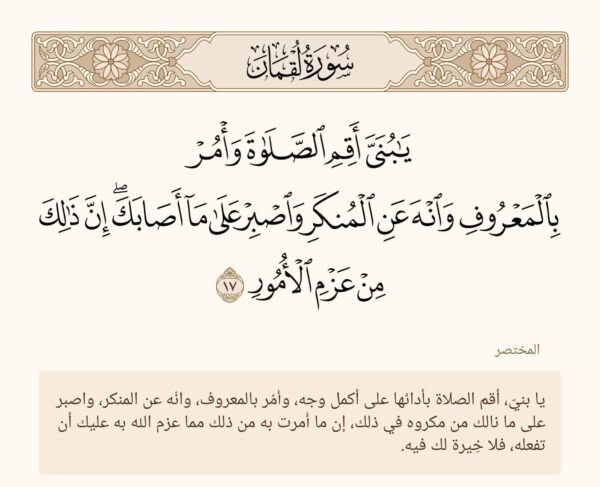 سُورَةُ لُقۡمَانَ
يَٰبُنَيَّ أَقِمِ ٱلصَّلَوٰةَ وَأۡمُرۡ
بِٱلۡمَعۡرُوفِ وَٱنۡهَ عَنِ ٱلۡمُنكَرِ وَٱصۡبِرۡ عَلَىٰ مَآ أَصَابَكَۖ إِنَّ ذَٰلِكَ
مِنۡ عَزۡمِ ٱلۡأُمُورِ ١٧
المختصر
يا بنيّ، أقم الصلاة بأدائها على أكمل وجه، وأمُر بالمعروف، وانْه عن المنكر، واصبر
على ما نالك من مكروه في ذلك، إن ما أمرت به من ذلك مما عزم الله به عليك أن
تفعله، فلا خِيرة لك فيه.